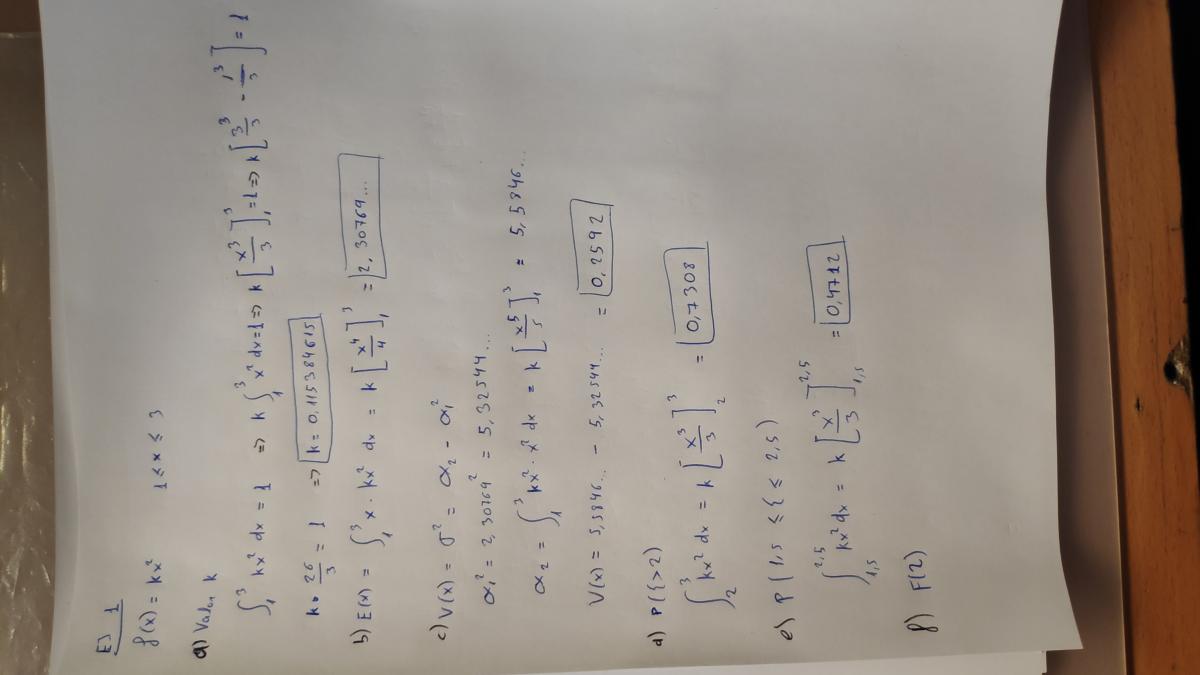 Ej 1
f(x) = kx² 1 ≤ x ≤ 3
a) Valor k
∫₁³ kx² dx = 1 => k ∫₁³ x² dx = 1 => k [x³/3]₁³ = 1 => k [3³/3 - 1³/3] = 1
k · 26/3 = 1 => k = 0,115384615
b) E(x) = ∫₁³ x · kx² dx = k [x⁴/4]₁³ = 2,30769...
c) V(x) = σ² = α₂ - α₁²
α₁² = 2,30769² = 5,32544...
α₂ = ∫₁³ kx² · x² dx = k [x⁵/5]₁³ = 5,5846...
V(x) = 5,5846... - 5,32544... = 0,2592
d) P(ξ > 2)
∫₂³ kx² dx = k [x³/3]₂³ = 0,7308
e) P(1,5 ≤ ξ ≤ 2,5)
∫₁,₅²,⁵ kx² dx = k [x³/3]₁,₅²,⁵ = 0,4712
f) F(2)